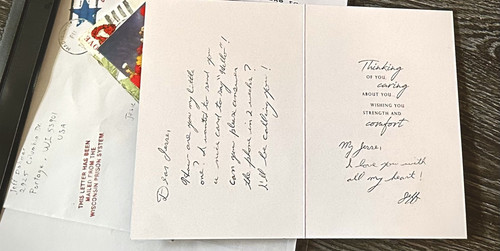 Dear Jesse,
How are you my little
one? I wanted to send you
a nice card to say "Hello"!
Can you please answer
the phone in 2 weeks?
I'll be calling you!
Thinking
OF YOU,
caring
ABOUT YOU...
WISHING YOU
STRENGTH AND
comfort
My Jesse,
I love you with
all my heart!
Jeff
Portage, WI 53901
USA
THIS LETTER HAS BEEN
MAILED FROM THE
WISCONSIN PRISON SYSTEM